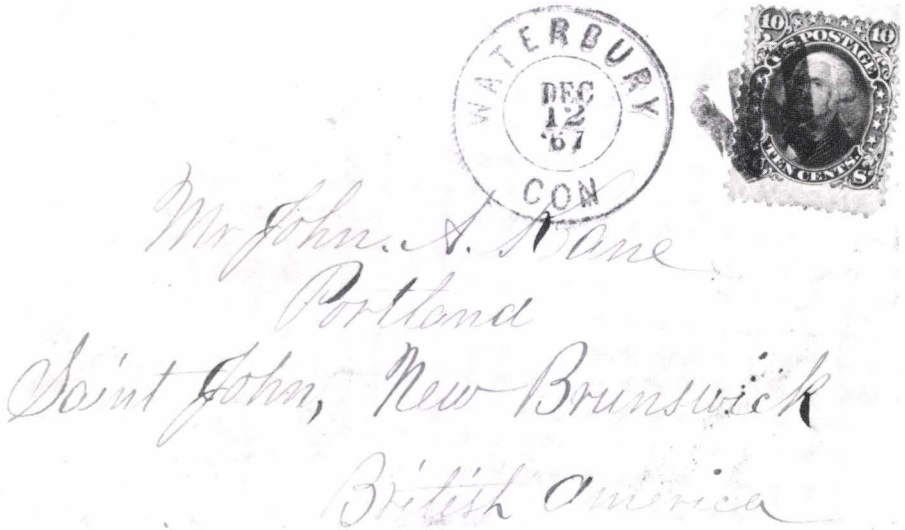 WATERBURY
DEC
12
'67
CON
10 10
U.S. POSTAGE
TEN CENTS.
U S
Mr John. A. Kane
Portland
Saint John, New Brunswick
British America